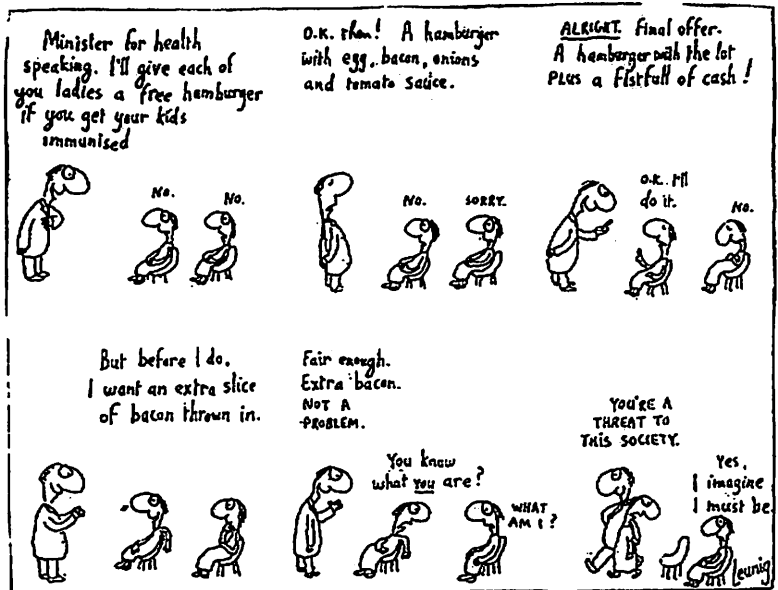 Minister for health
speaking. I'll give each of
you ladies a free hamburger
if you get your kids
immunised
NO.
NO.
O.K. then! A hamburger
with egg, bacon, onions
and tomato sauce.
NO.
SORRY.
ALRIGHT. Final offer.
A hamburger with the lot
PLUS a fistfull of cash!
O.K. I'll
do it.
NO.
But before I do,
I want an extra slice
of bacon thrown in.
Fair enough.
Extra bacon.
NOT A
PROBLEM.
You know
what you are?
WHAT
AM I?
YOU'RE A
THREAT TO
THIS SOCIETY.
Yes,
I imagine
I must be
Leunig